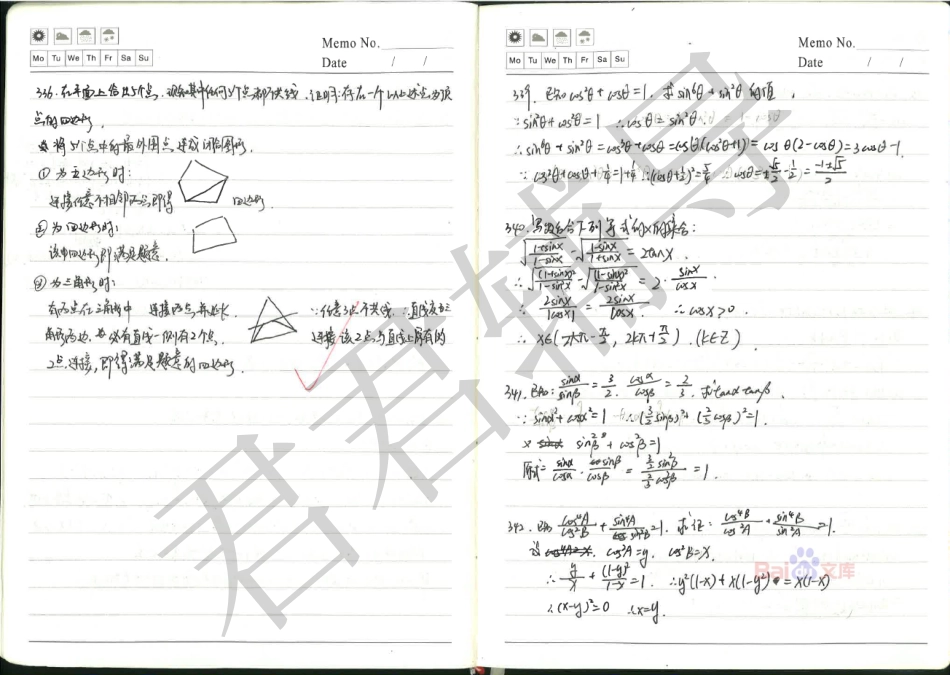 Memo No.
Mo Tu We Th Fr Sa Su
Date / /
336. 在平面上给出5个点，其中任何3个点都不共线，证明：存在一个以上述点为顶
点的四边形.
将5个点中的最外围点连成凸图形.
① 为五边形时：
连接任意不相邻两点，即得 四边形.
② 为四边形时：
该四边形即满足题意.
③ 为三角形时：
有两点在三角形中 连接两点，并延长. ∵任意3点不共线. ∴直线交三
角形两边，必有直线一侧有2个点. 连接该2点，与直线上原有的
2点连接，即得满足题意的四边形.
Memo No.
Mo Tu We Th Fr Sa Su
Date / /
339. 已知cos²θ+cosθ=1. 求sin⁶θ+sin²θ的值.
∵sin²θ+cos²θ=1 ∴cosθ=sin²θ
∴sin⁶θ+sin²θ=cos³θ+cosθ=cosθ(cos²θ+1)=cosθ(2-cosθ)=3cosθ-1.
∵cos²θ+cosθ+1/4=1+1/4 ∴(cosθ+1/2)²=5/4 ∴cosθ=±√5/2-1/2=(-1±√5)/2
340. 写出适合下列等式的x的集合：
√((1+sinx)/(1-sinx)) - √((1-sinx)/(1+sinx)) = 2tanx.
∴√((1+sinx)²/(1-sin²x)) - √((1-sinx)²/(1-sin²x)) = 2·sinx/cosx.
∴ 2sinx/|cosx| = 2sinx/cosx. ∴cosx>0
∴ x∈(2kπ-π/2, 2kπ+π/2).(k∈Z)
341. 已知：sinα/sinβ=3/2. cosα/cosβ=2/3. 求tanα·tanβ.
∵sin²α+cosα²=1 ∴(3/2 sinβ)²+(2/3 cosβ)²=1.
× sin²β+cos²β=1
原式=sinα/cosα·sinβ/cosβ=(3/2 sin²β)/(2/3 cos²β)=1.
342. 已知 cos⁴A/cos²B+sin⁴A/sin²B=1. 求证：cos⁴B/cos²A+sin⁴B/sin²A=1.
设 cos²A=y. cos²B=x.
∴ y²/x+(1-y)²/(1-x)=1. ∴y²(1-x)+x(1-y²)=x(1-x)
∴(x-y)²=0 ∴x=y.
君君辅导
Bai文库